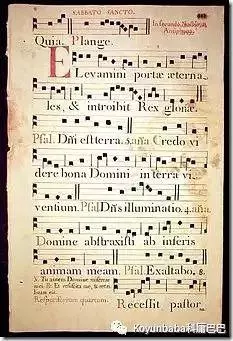 SABBATO SANCTO.
In secundo Nocturno,
Antiphona.
Quia. Plange.
ELevamini portæ æterna
les, & introibit Rex gloriæ.
Psal. Dñi est terra. 5. aña Credo vi
dere bona Domini in terra vi
ventium. Psal Dñs illuminatio. 4. aña
Domine abstraxisti ab inferis
animam meam. Psal. Exaltabo. 8.
V. Tu autem Domine miserere
mei. R. Et resuscita me, & retri
buam eis.
Responsorium quartum.
Recessit pastor
Koyunbaba科庸巴巴